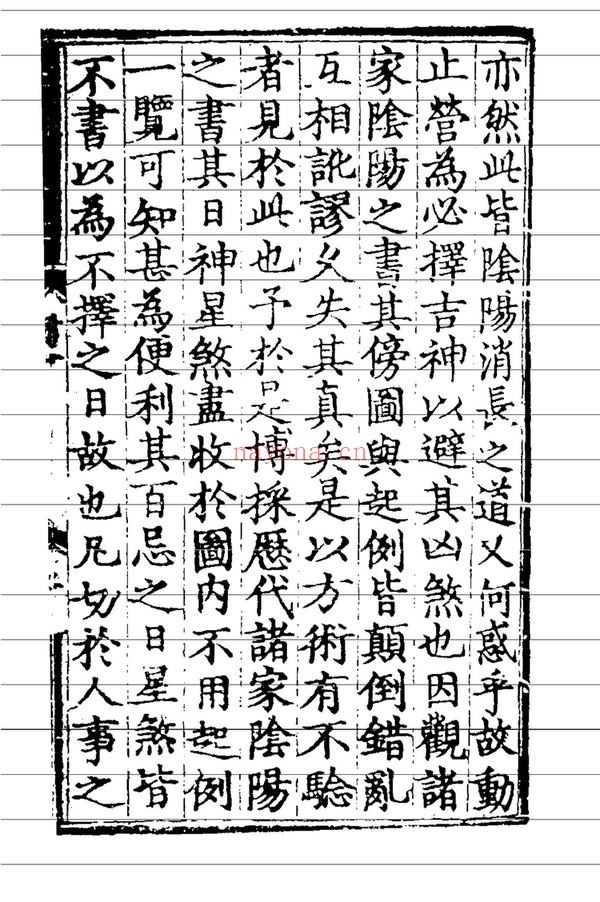 亦然此皆陰陽消長之道又何惑乎故動
止營為必擇吉神以避其凶煞也因觀諸
家陰陽之書其傍圖與起例皆顛倒錯亂
互相訛謬久失其真矣是以方術有不驗
者見於此也予於是博採歷代諸家陰陽
之書其日神星煞盡收於圖内不用起例
一覽可知甚為便利其百忌之日星煞皆
不書以為不擇之日故也凡切於人事之
nayona.cn